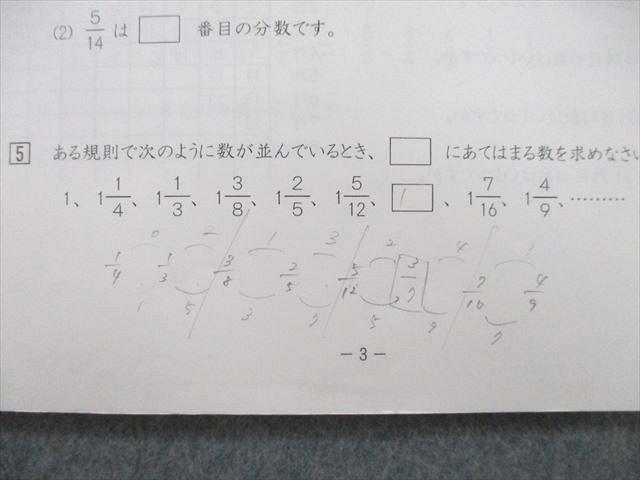 (2) 5/14 は □ 番目の分数です。
5 ある規則で次のように数が並んでいるとき、□ にあてはまる数を求めなさい
1、 1 1/4、 1 1/3、 1 3/8、 1 2/5、 1 5/12、 1 、 1 7/16、 1 4/9、………
0 2 1 3 2 4
1/4 1/3 3/8 2/5 5/12 3/7 7/16 4/9
1 5 3 7 5 9 7
－3－